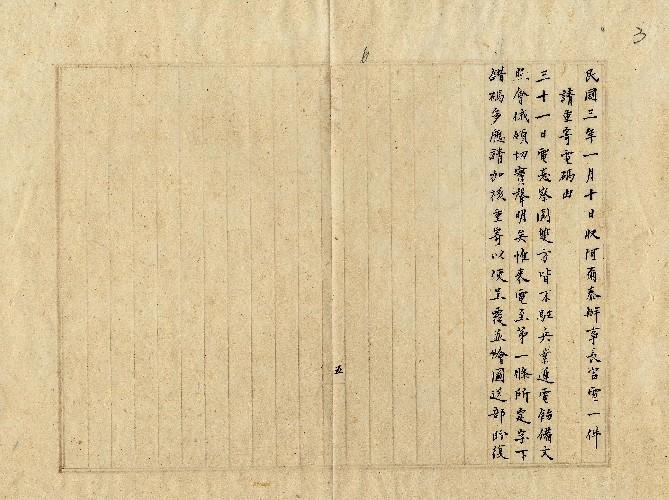 3
6
民國三年一月十日收阿爾泰辦事長官電一件
請重寄電碼由
三十一日電悉察圖雙方皆不駐兵業進電飭備文
照會俄領切實聲明矣惟來電至第一條所定字下
錯碼多應請加核重寄以便呈覆並繪圖送部盼復
五